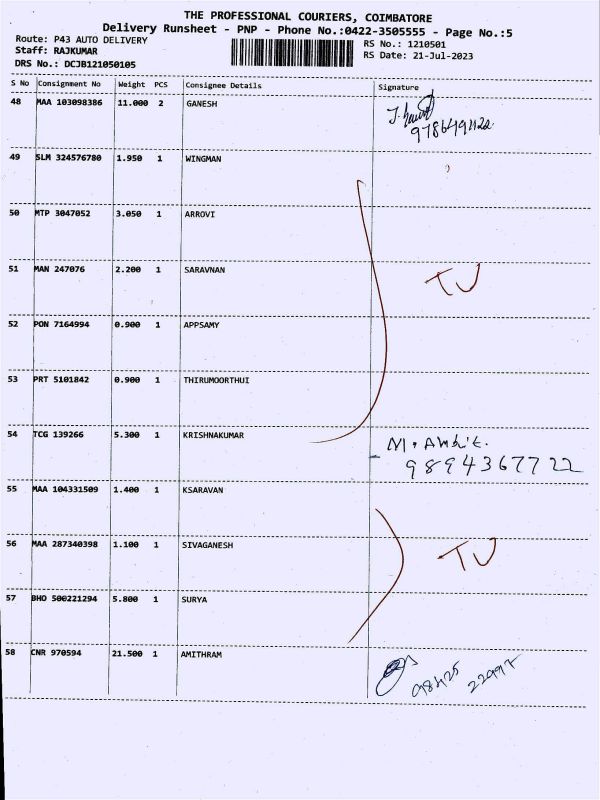 THE PROFESSIONAL COURIERS, COIMBATORE
Delivery Runsheet - PNP - Phone No.:0422-3505555 - Page No.:5
Route: P43 AUTO DELIVERY RS No.: 1210501
Staff: RAJKUMAR RS Date: 21-Jul-2023
DRS No.: DCJB121050105
S No Consignment No Weight PCS Consignee Details Signature
48 MAA 103098386 11.000 2 GANESH
49 SLM 324576780 1.950 1 WINGMAN
50 MTP 3047052 3.050 1 ARROVI
51 MAN 247076 2.200 1 SARAVNAN TU
52 PON 7164994 0.900 1 APPSAMY
53 PRT 5101842 0.900 1 THIRUMOORTHUI
54 TCG 139266 5.300 1 KRISHNAKUMAR
9894367722
55 MAA 104331509 1.400 1 KSARAVAN
56 MAA 287340398 1.100 1 SIVAGANESH TU
57 BHO 500221294 5.800 1 SURYA
58 CNR 970594 21.500 1 AMITHRAM